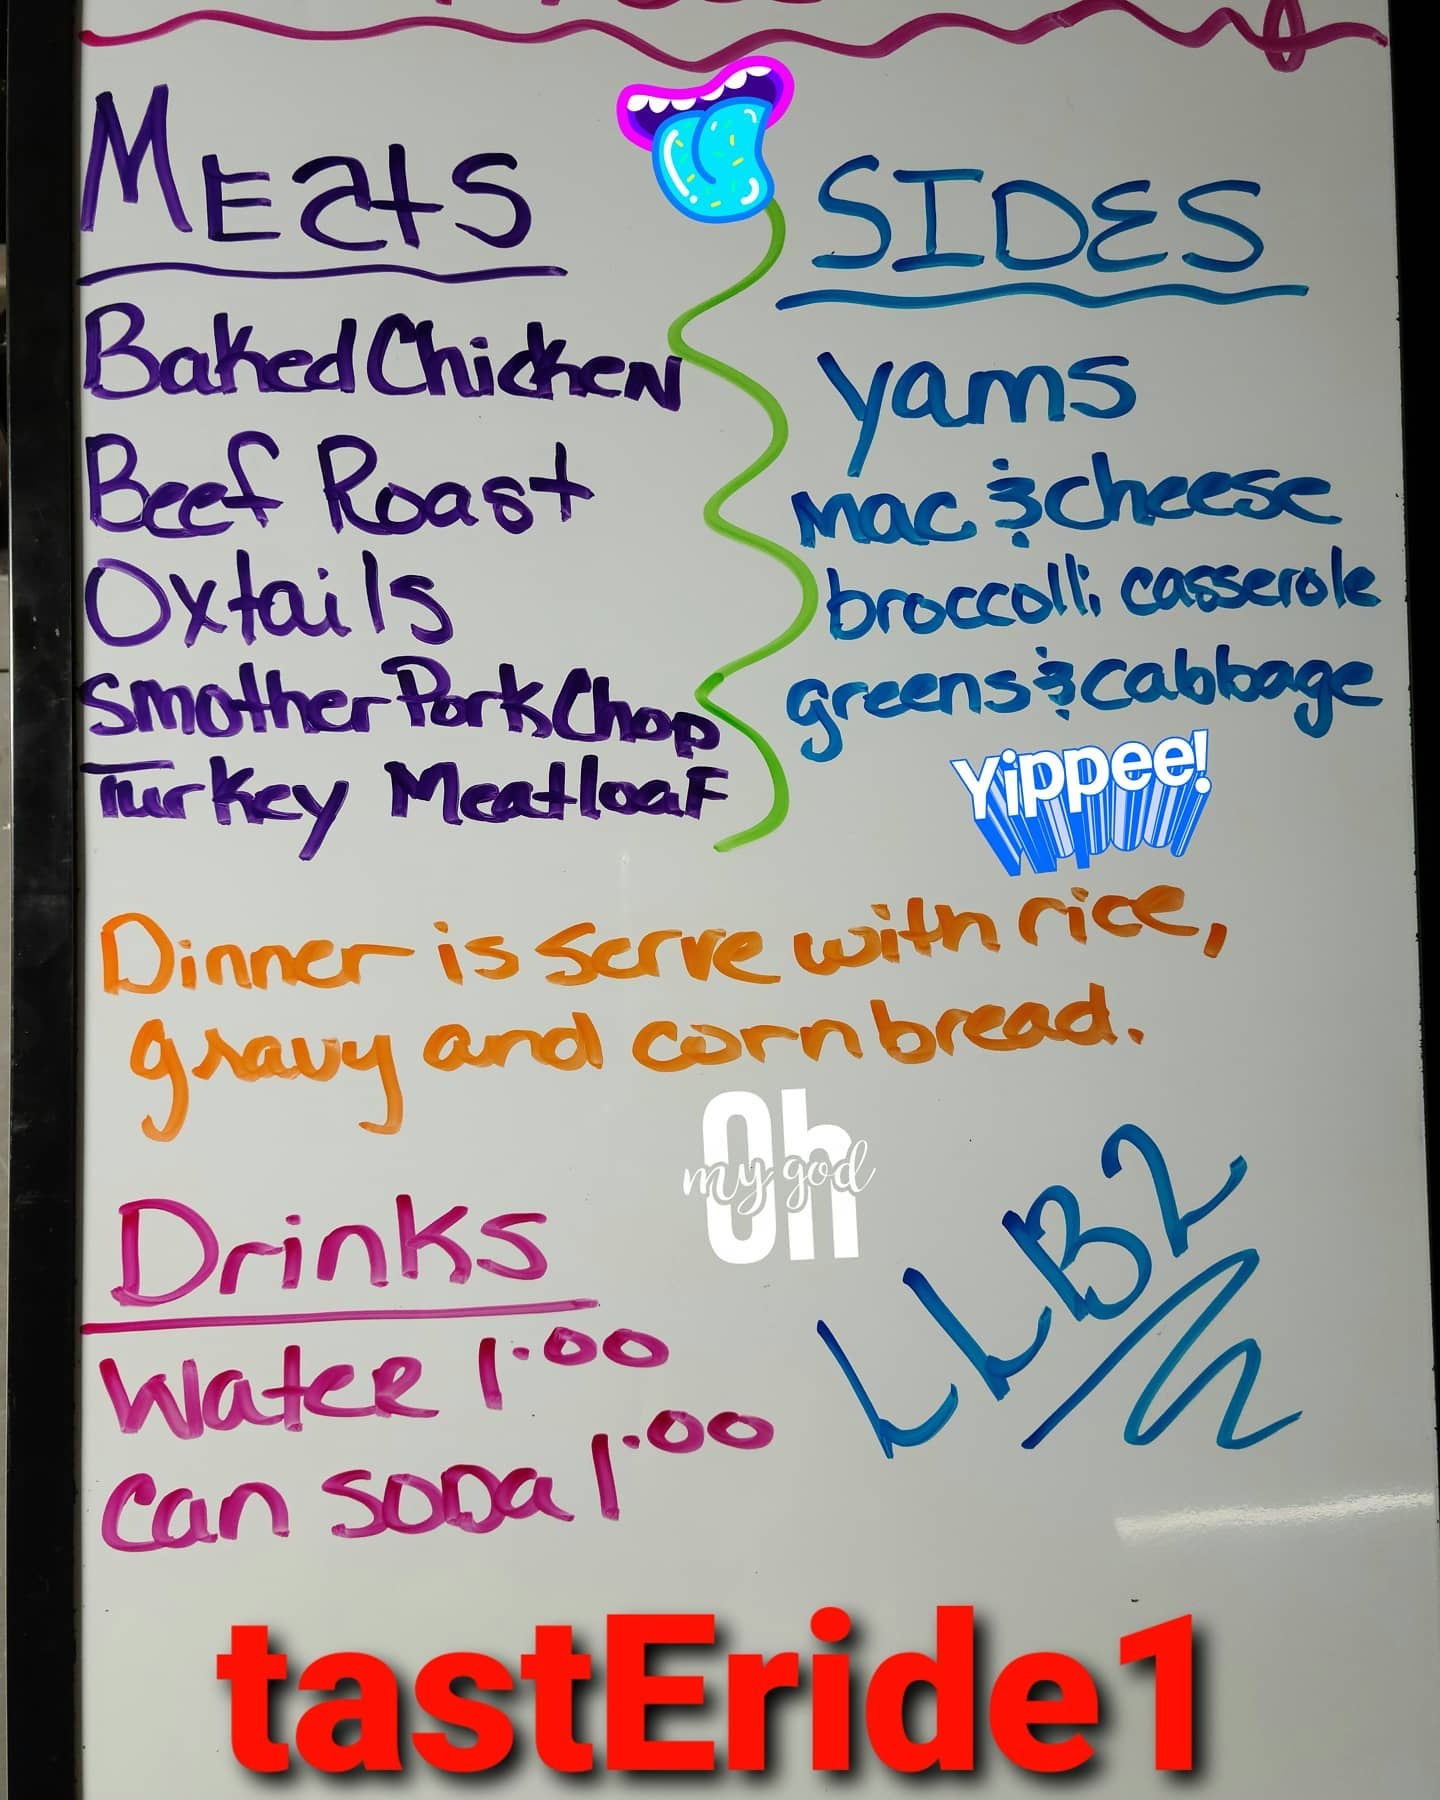 Meats
Baked Chicken
Beef Roast
Oxtails
Smother Pork Chop
Turkey Meatloaf
SIDES
Yams
Mac & cheese
broccolli casserole
greens & cabbage
Yippee!
Dinner is serve with rice,
gravy and corn bread.
Oh
my god
Drinks
Water 1.00
Can SODa 1.00
LLB2
tastEride1